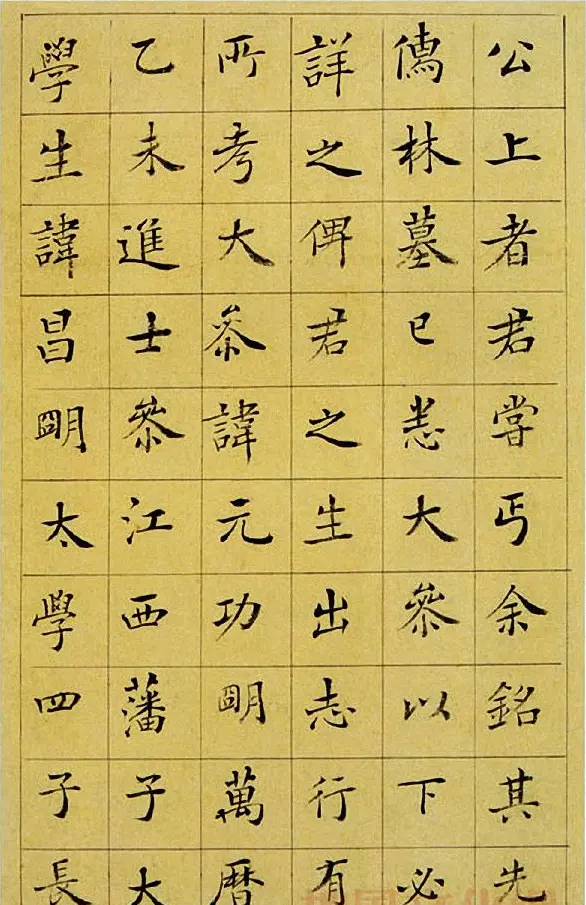 公上者君嘗丐余銘其先
儒林墓已悉大叅以下必
詳之俾君之生出志行有
所考大叅諱元功朙萬曆
乙未進士叅江西藩子大
學生諱昌朙太學四子長